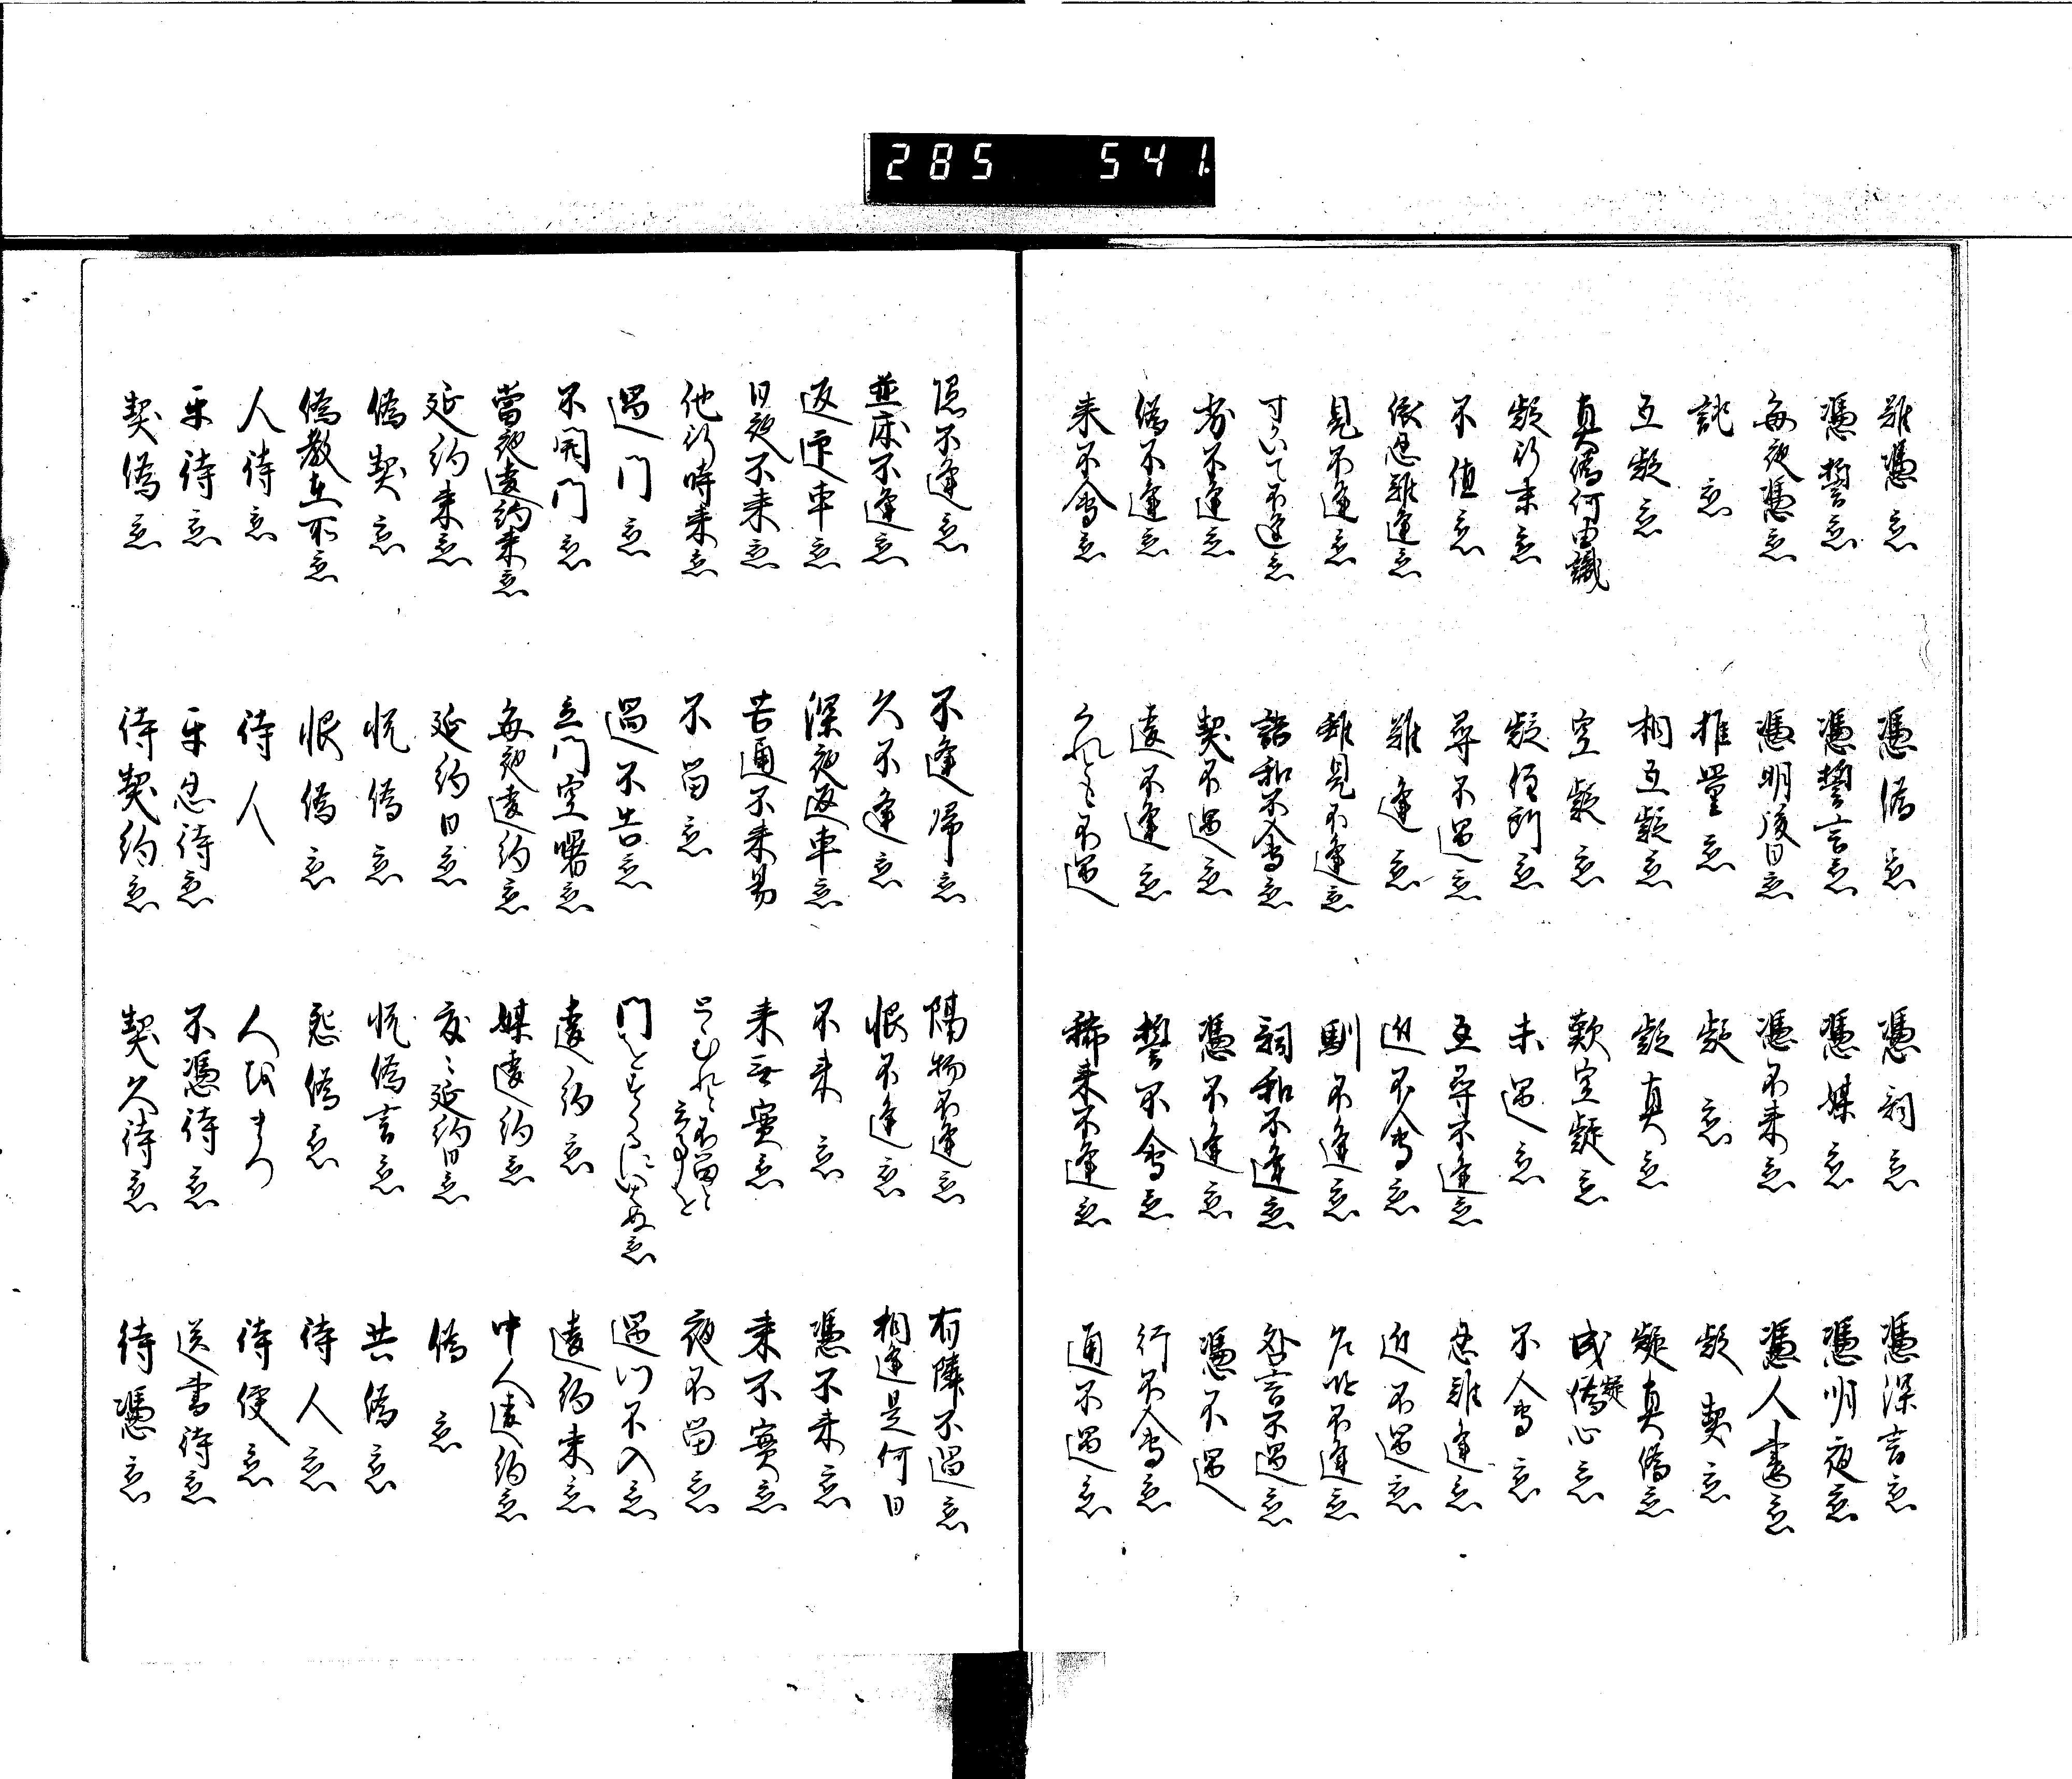 285 541
難憑恋 憑偽恋 憑詞恋 憑深言恋
憑誓恋 憑誓言恋 憑媒恋 憑明夜恋
毎夜憑恋 憑明後日恋 憑不来恋 憑人書恋
誂恋 推量恋 疑恋 疑契恋
互疑恋 相互疑恋 疑真恋 疑真偽恋
真偽何由識 空疑恋 歎空疑恋 成偽疑心恋
疑行末恋 疑住所恋 未遇恋 不会恋
不値恋 尋不遇恋 互尋不逢恋 忍難逢恋
依忍難逢恋 難逢恋 近不会恋 近不遇恋
見不逢恋 雖見不逢恋 馴不逢恋 不逢恋
不逢恋 語和不会恋 詞和不逢恋 言不遇恋
不逢恋 契不遇恋 憑不逢恋 憑不遇
偽不逢恋 違不逢恋 誓不会恋 行不会恋
来不会恋 不遇 稀来不逢恋 通不遇恋
隠不逢恋 不逢帰恋 隔物不逢恋 有隣不遇恋
並床不逢恋 久不逢恋 恨不逢恋 相逢是何日
返迎車恋 深夜返車恋 不来恋 憑不来恋
日夜不来恋 昔通不来易 来無実恋 来不実恋
他行時来恋 不留恋 とむれと不留と云事を 夜不留恋
過門恋 過不告恋 門 恋 過門不入恋
不開門恋 立門空曙恋 違約恋 違約来恋
当夜違約来恋 毎夜違約恋 媒違約恋 中人違約恋
延約来恋 延約日恋 度々延約日恋 偽恋
偽契恋 悦偽恋 悦偽言恋 共偽恋
偽教在所恋 恨偽恋 怨偽恋 待人恋
人待恋 待人 人をまつ 待便恋
来待恋 忍待恋 不憑待恋 送書待恋
契偽恋 待契約恋 契久待恋 待憑恋